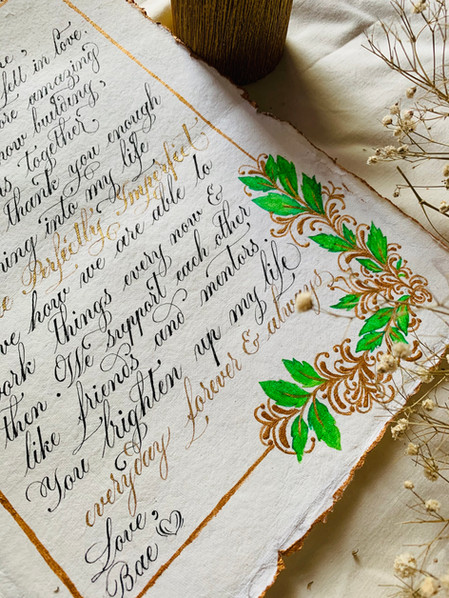 fell in love.
amazing
now building,
together
thank you enough
into my life
Perfectly Imperfect
how we are able to
work things every now &
then. We support each other
like friends and mentors.
You brighten up my life
everyday forever & always
Love,
Bae